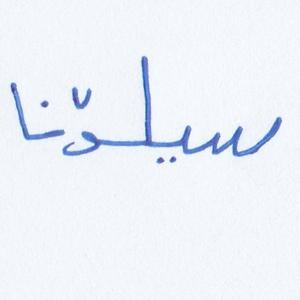 سيلوّنا